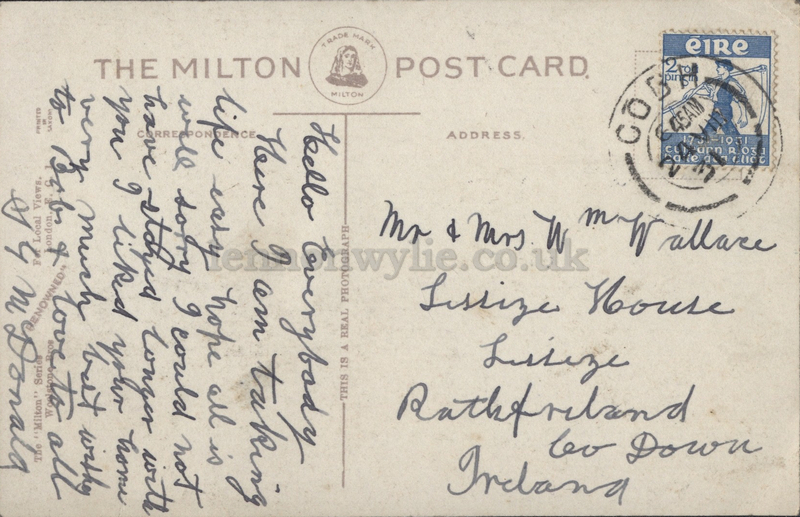 THE MILTON POST CARD.
TRADE MARK
MILTON
CORRESPONDENCE.
ADDRESS.
Hello Everybody
Here I am taking
life easy hope all is
well sorry I could not
have stayed longer with
you I liked your home
very much best wishes
to Bob & love to all
J G McDonald
Mr & Mrs Wm Wallace
Lissize House
Lissize
Rathfriland
Co Down
Ireland
THIS IS A REAL PHOTOGRAPH
The "Milton" Series
Woolstone Bros
"RENOWNED"
For Local Views.
London, E.C.1.
PRINTED
IN
SAXONY
éire
2
1731-1931
lennonwylie.co.uk